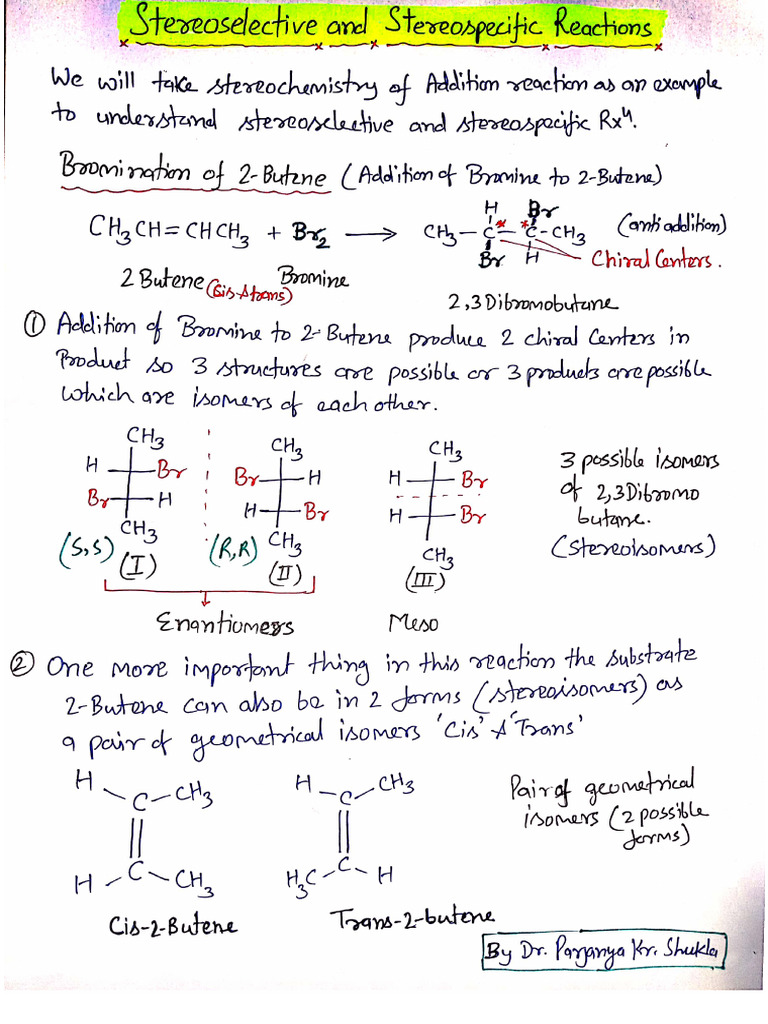 Stereoselective and Stereospecific Reactions
We will take stereochemistry of Addition reaction as an example
to understand stereoselective and stereospecific Rxn.
Bromination of 2-Butene (Addition of Bromine to 2-Butene)
H Br
CH3CH=CHCH3 + Br2 → CH3-C*-*C-CH3 (anti addition)
Br H Chiral Centers.
2 Butene (Cis-trans) Bromine
2,3 Dibromobutane
① Addition of Bromine to 2-Butene produce 2 chiral Centers in
Product so 3 structures are possible or 3 products are possible
which are isomers of each other.
CH3 CH3 CH3
H Br Br H H Br
Br H H Br H Br
CH3 CH3 CH3
(S,S) (I) (R,R) (II) (III)
3 possible isomers
of 2,3 Dibromo
butane.
(Stereoisomers)
Enantiomers Meso
② One more important thing in this reaction the substrate
2-Butene can also be in 2 forms (stereoisomers) as
a pair of geometrical isomers 'Cis' & 'Trans'
H C CH3 H C CH3
H C CH3 H3C C H
Cis-2-Butene Trans-2-butene
Pair of geometrical
isomers (2 possible
forms)
By Dr. Parjanya Kr. Shukla